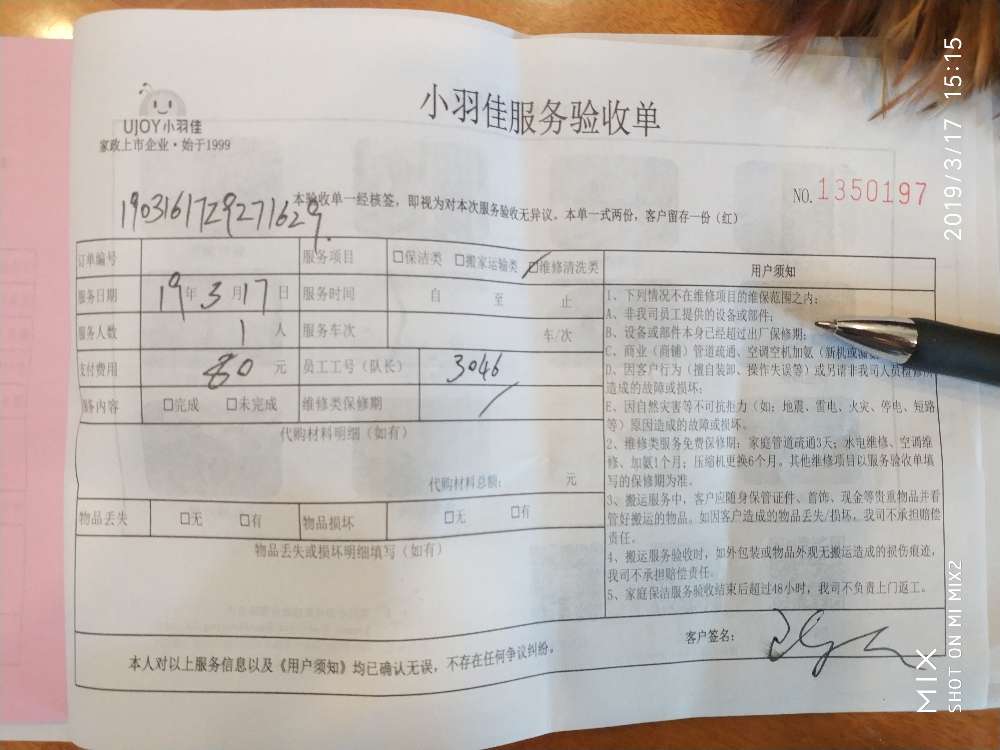 UJOY小羽佳
家政上市企业·始于1999
小羽佳服务验收单
NO.1350197
本验收单一经核签，即视为对本次服务验收无异议。本单一式两份，客户留存一份（红）
1903161729271629
订单编号 服务项目 □保洁类 □搬家运输类 □维修清洗类
服务日期 19年3月17日 服务时间 自 至 止
服务人数 1 人 服务车次 车/次
支付费用 80 元 员工工号（队长） 3046
服务内容 □完成 □未完成 维修类保修期
代购材料明细（如有）
代购材料总额： 元
物品丢失 □无 □有 物品损坏 □无 □有
物品丢失或损坏明细填写（如有）
用户须知
1、下列情况不在维修项目的维保范围之内：
A、非我司员工提供的设备或部件；
B、设备或部件本身已经超过出厂保修期；
C、商业（商铺）管道疏通、空调空机加氨（新机或
D、因客户行为（擅自装卸、操作失误等）或另请非我司人员检修所
造成的故障或损坏；
E、因自然灾害等不可抗拒力（如：地震、雷电、火灾、停电、短路
等）原因造成的故障或损坏。
2、维修类服务免费保修期：家庭管道疏通3天；水电维修、空调维
修、加氨1个月；压缩机更换6个月。其他维修项目以服务验收单填
写的保修期为准。
3、搬运服务中，客户应随身保管证件、首饰、现金等贵重物品并看
管好搬运的物品。如因客户造成的物品丢失/损坏，我司不承担赔偿
责任。
4、搬运服务验收时，如外包装或物品外观无搬运造成的损伤痕迹，
我司不承担赔偿责任。
5、家庭保洁服务验收结束后超过48小时，我司不负责上门返工。
客户签名：
本人对以上服务信息以及《用户须知》均已确认无误，不存在任何争议纠纷。
2019/3/17 15:15
MIX
SHOT ON MI MIX2